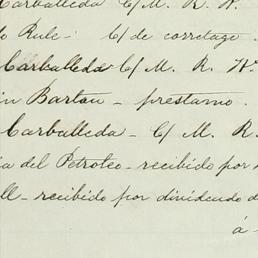 Carballeda C/ M. R. W.
Rule- C/ de corretage.
Carballeda C/ M. R. W.
in Barton - prestamo.
Carballeda - C/ M. R.
ia del Petroleo - recibido por
ll - recibido por dividendo d
á